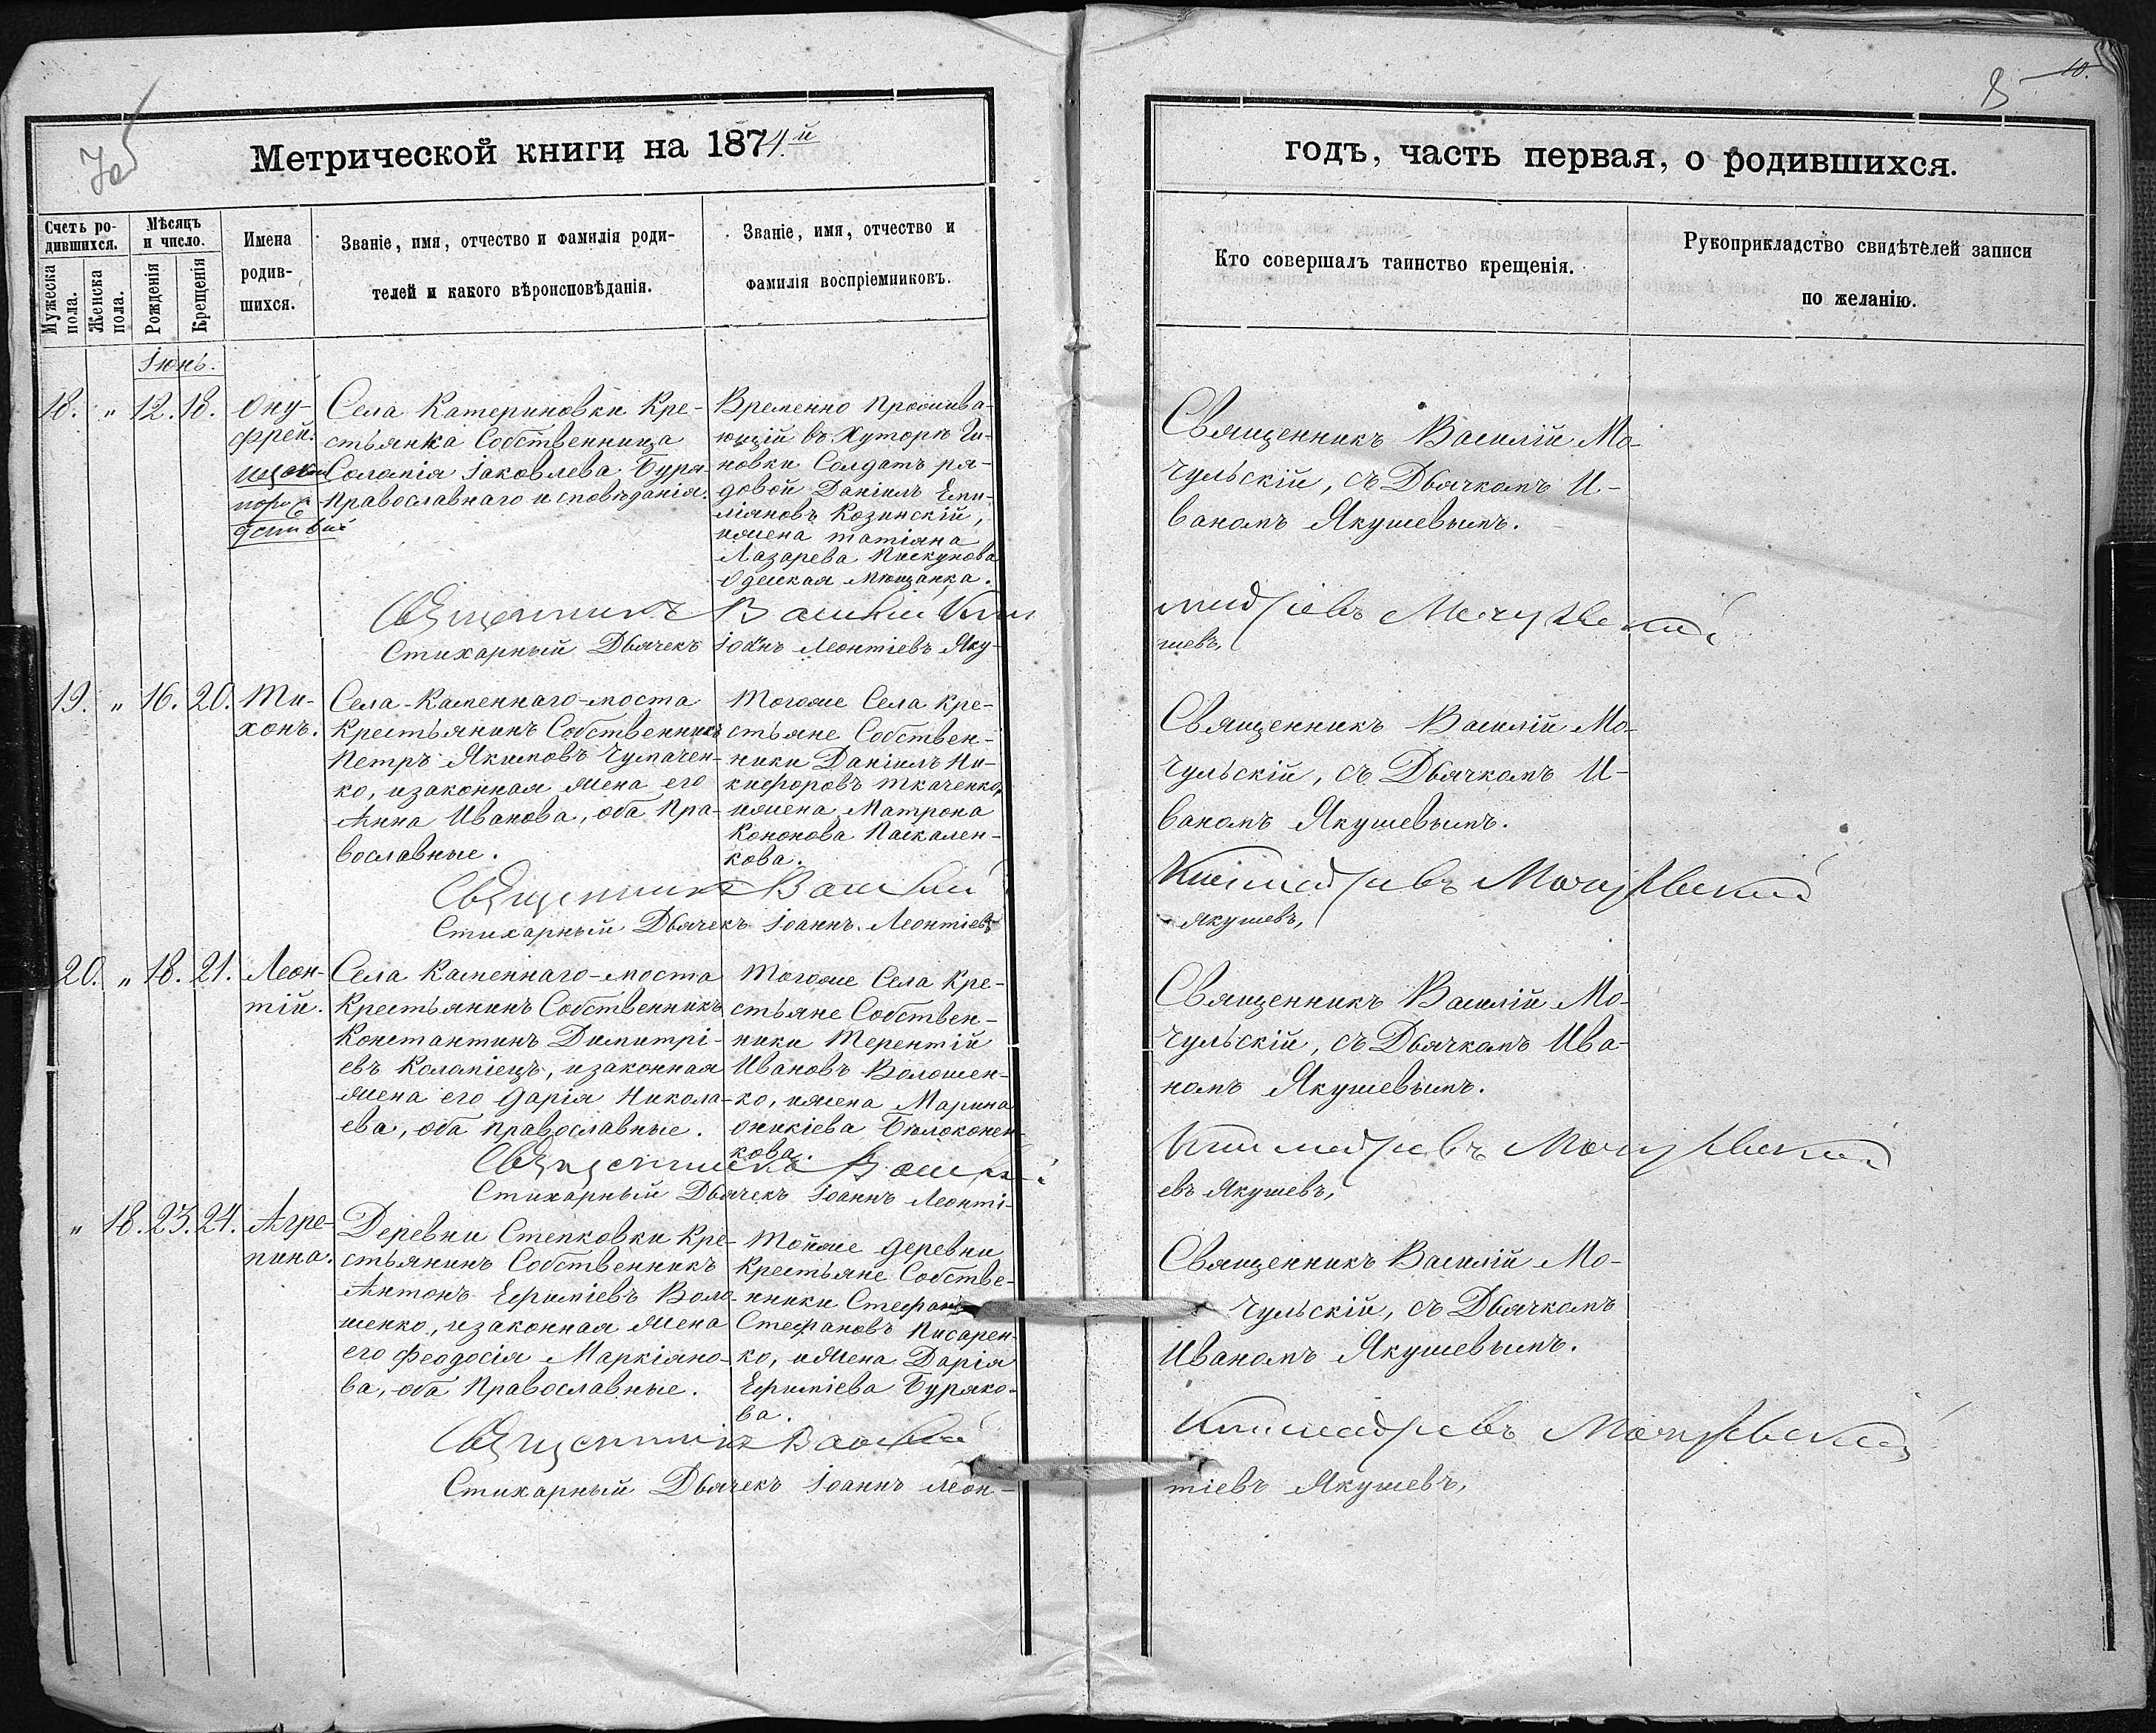 8 10.
Метрической книги на 1874й
годъ, часть первая, о родившихся.
Счетъ ро-
дившихся.
Мужеска
пола.
Женска
пола.
Мѣсяцъ
и число.
Рожденія
Крещенія
Имена
родив-
шихся.
Званіе, имя, отчество и фамилія роди-
телей и какого вѣроисповѣданія.
Званіе, имя, отчество и
фамилія воспріемниковъ.
Кто совершалъ таинство крещенія.
Рукоприкладство свидѣтелей записи
по желанію.
Іюнь.
18. " 12. 18.
Ону-
фрей.
Села Катериновки Кре-
стьянка Собственница
Соломія Іаковлева Буря-
Православнаго исповѣданія.
Временно прожива-
ющій въ Хуторѣ Ги-
новки Солдатъ ря-
довой Даніилъ Еми-
ліяновъ Козинскій,
ижена татіяна
Лазарева Пискунова
Одеская Мѣщанка.
Священникъ Василій Мо-
чульскій, съ Дьячкомъ И-
ваномъ Якушевымъ.
Священникъ Василій Мочульскій
Стихарный Дьячекъ Іоанъ Леонтіевъ Яку-
шевъ,
19. " 16. 20.
Ти-
хонъ.
Села Каменнаго-моста
Крестьянинъ Собственникъ
Петръ Якимовъ Чумачен-
ко, изаконная жена его
Анна Иванова, оба Пра-
вославные.
Тогоже Села Кре-
стьяне Собствен-
ники Даніилъ Ни-
кифоровъ Ткаченко,
ижена Матрона
Кононова Паскален-
кова.
Священникъ Василій Мо-
чульскій, съ Дьячкомъ И-
ваномъ Якушевымъ.
Священникъ Василій Мочульскій
Стихарный Дьячекъ Іоаннъ Леонтіевъ
Якушевъ,
20. " 18. 21.
Леон-
тій.
Села Каменнаго-моста
Крестьянинъ Собственникъ
Константинъ Димитрі-
евъ Коломіецъ, изаконная
жена его Дарія Никола-
ева, оба православные.
Тогоже Села Кре-
стьяне Собствен-
ники Терентій
Ивановъ Волошен-
ко, ижена Марина
оникіева Бѣлоконен-
кова.
Священникъ Василій Мо-
чульскій, съ Дьячкомъ Ива-
номъ Якушевымъ.
Священникъ Василій Мочульскій
Стихарный Дьячекъ Іоаннъ Леонті-
евъ Якушевъ,
" 18. 23. 24.
Агре-
пина.
Деревни Степковки Кре-
стьянинъ Собственникъ
Антонъ Ефиміевъ Воло-
шенко, изаконная жена
его Феодосія Маркіяно-
ва, оба Православные.
Тойже деревни
Крестьяне Собстве-
нники Стефанъ
Стефановъ Писарен-
ко, ижена Дарія
Ефиміева Буряко-
ва.
Священникъ Василій Мо-
чульскій, съ Дьячкомъ
Иваномъ Якушевымъ.
Священникъ Василій Мочульскій
Стихарный Дьячекъ Іоаннъ Леон-
тіевъ Якушевъ,